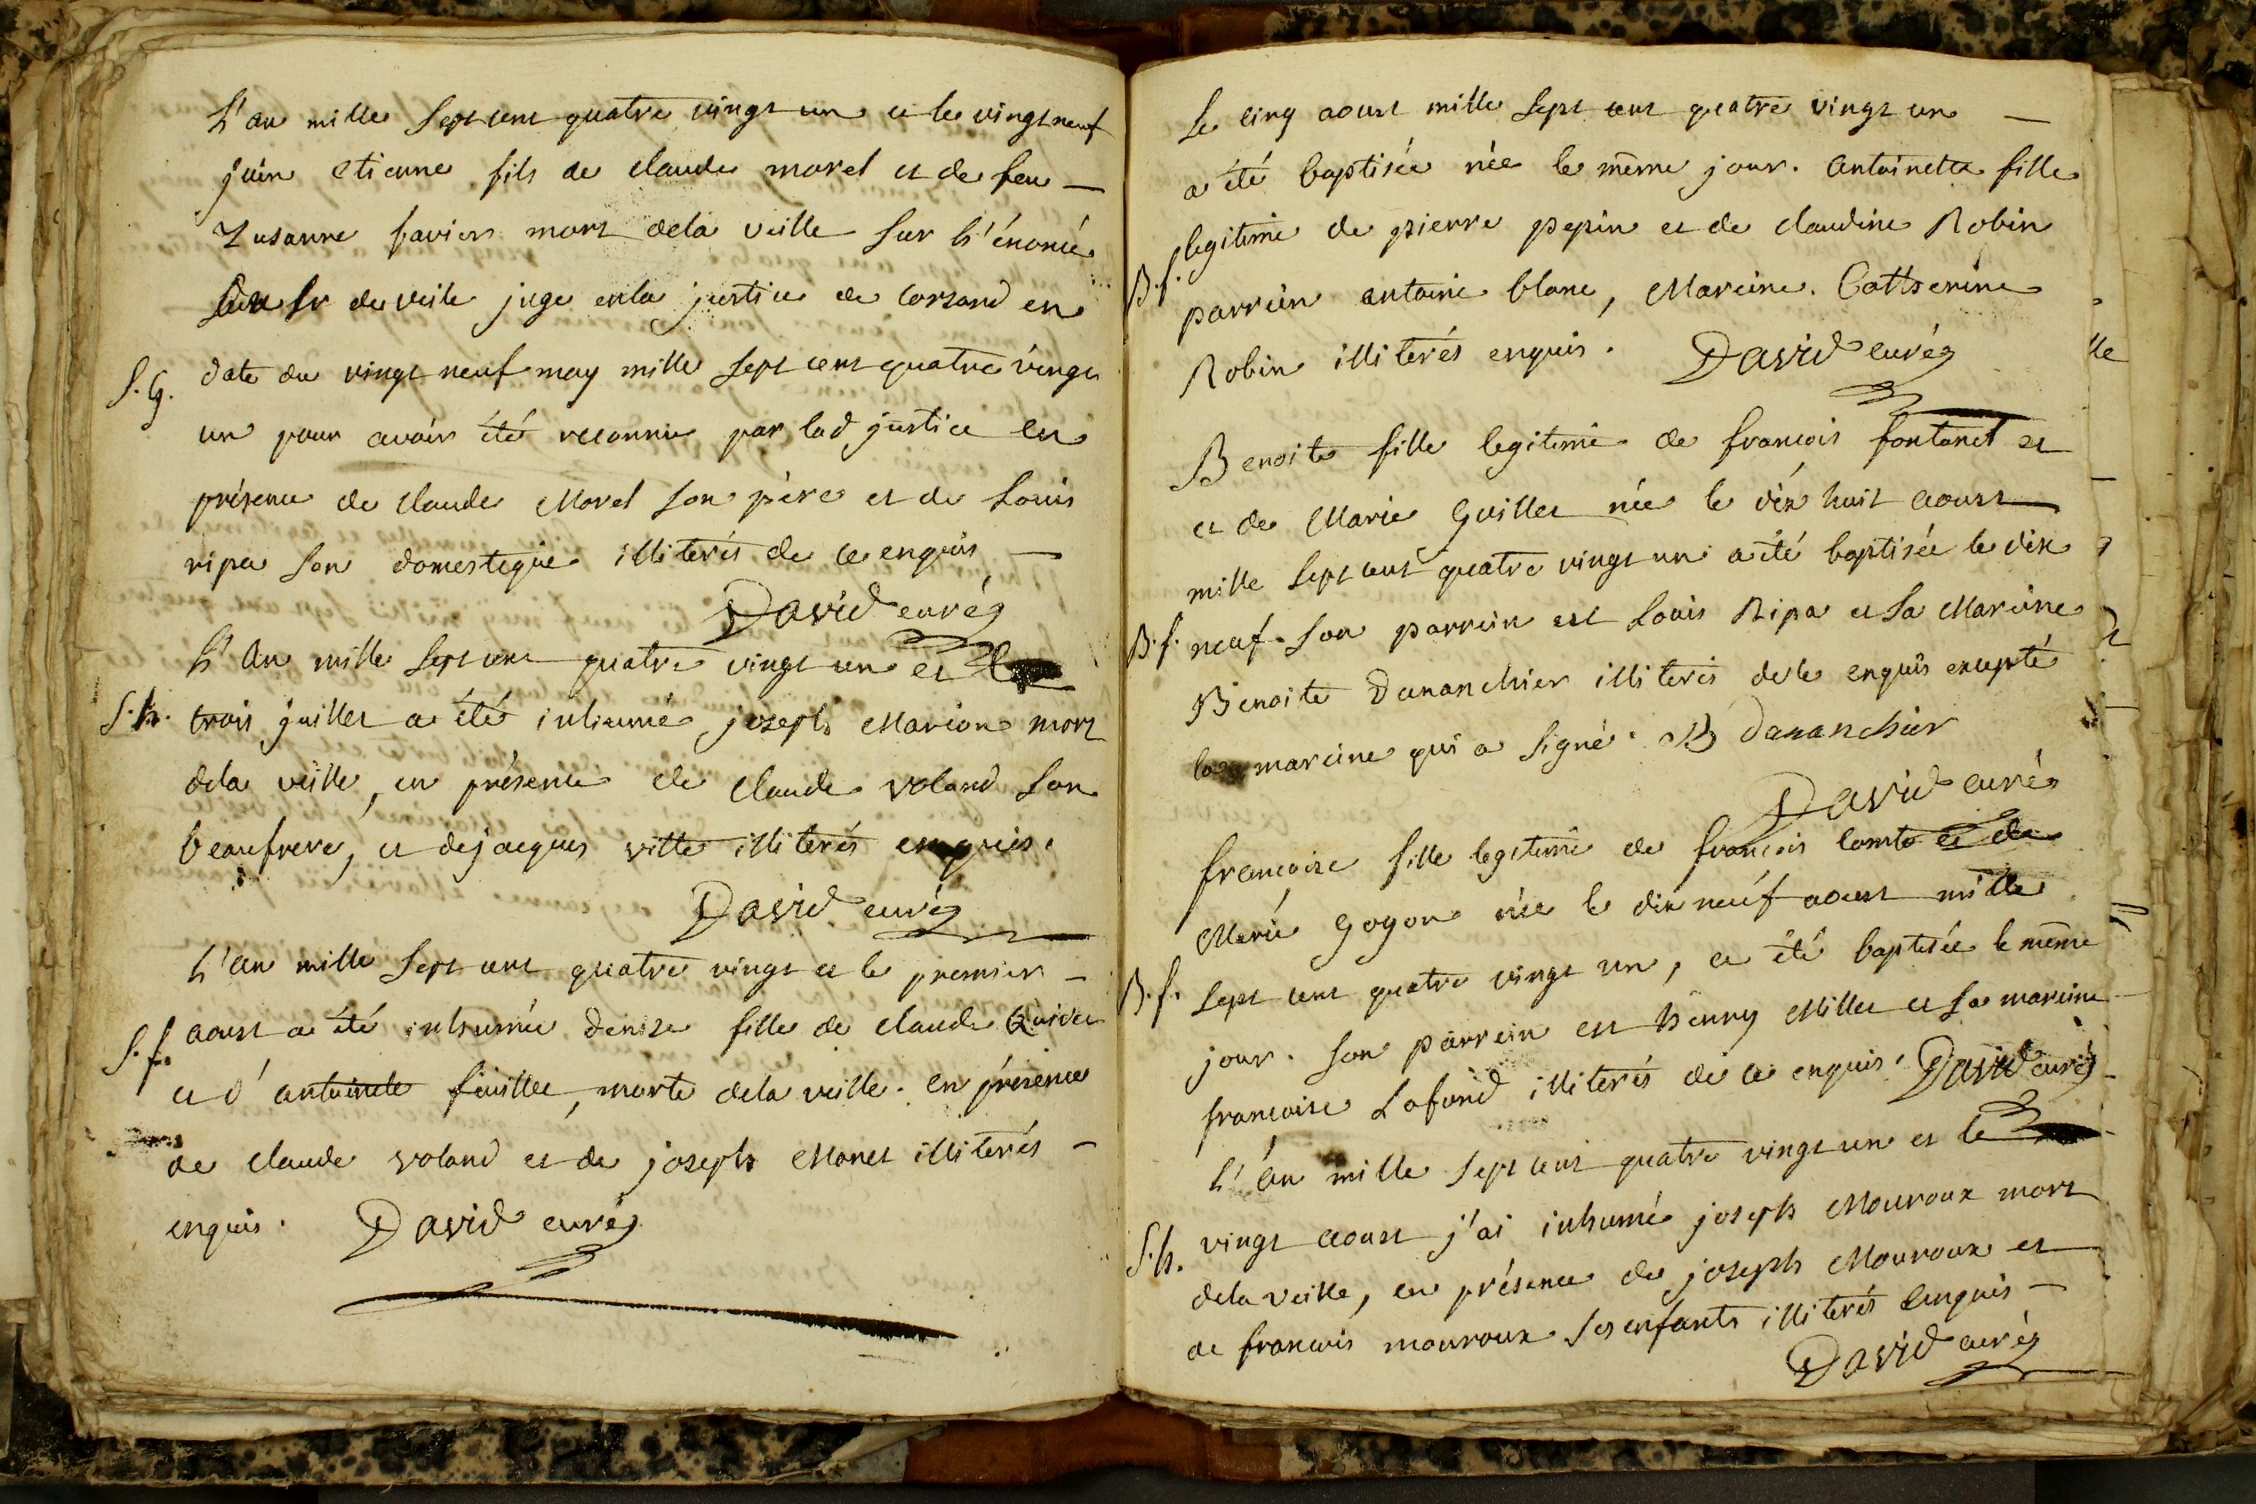 L'an mille sept cent quatre vingt un et le vingt neuf
juin etienne fils de claude morel et de feu —
Zusanne favier mort dela veille sur L'énoncé
du Sr de veile juge en la justice de Corsand en
S.G. date du vingt neuf may mille sept cent quatre vingt
un pour avoir été reconnu par lad justice en
présence de claude Morel son père et de Louis
ripa son domestique illiterés de ce enquis —
David curé
L'An mille sept cent quatre vingt un et le
S.h. trois juillet a été inhumé joseph Marion mort
dela veille, en présence de claude voland son
beaufrere, et de jacques ville illiterés enquis.
David curé
L'an mille sept cent quatre vingt et le premier —
S.f. aoust a été inhumée denise fille de claude
et d'antoinete feuillee, morte dela veille. en présence
de claude voland et de joseph Monet illiterés —
enquis. David curé
Le cinq aoust mille sept cent quatre vingt un —
a été baptisée née le même jour. antoinette fille
B.f. legitime de pierre pepin et de claudine Robin
parrein antoine blanc, Mareine. Catherine
Robin illiterés enquis. David curé
Benoite fille legitime de francois fontanet et
et de Marie Guillet née le dix huit aoust
mille sept cent quatre vingt un a été baptisée le dix
B.f. neuf. son parrein est Louis Ripa et sa Mareine
Benoite Dananchier illiterés de ce enquis excepté
la mareine qui a signé. B Dananchier
David curé
francoise fille legitime de francois comte et de
Marie Gogon née le dix neuf aoust mille
B.f. sept cent quatre vingt un, a été baptisée le même
jour. son parrein est henry Millet et sa mareine
francoise Lafond illiterés de ce enquis. David curé
L'an mille sept cent quatre vingt un et le
S.h. vingt aoust j'ai inhumé joseph Mouroux mort
dela veille, en présence de joseph Mouroux et
de francois mouroux ses enfants illiterés enquis —
David curé